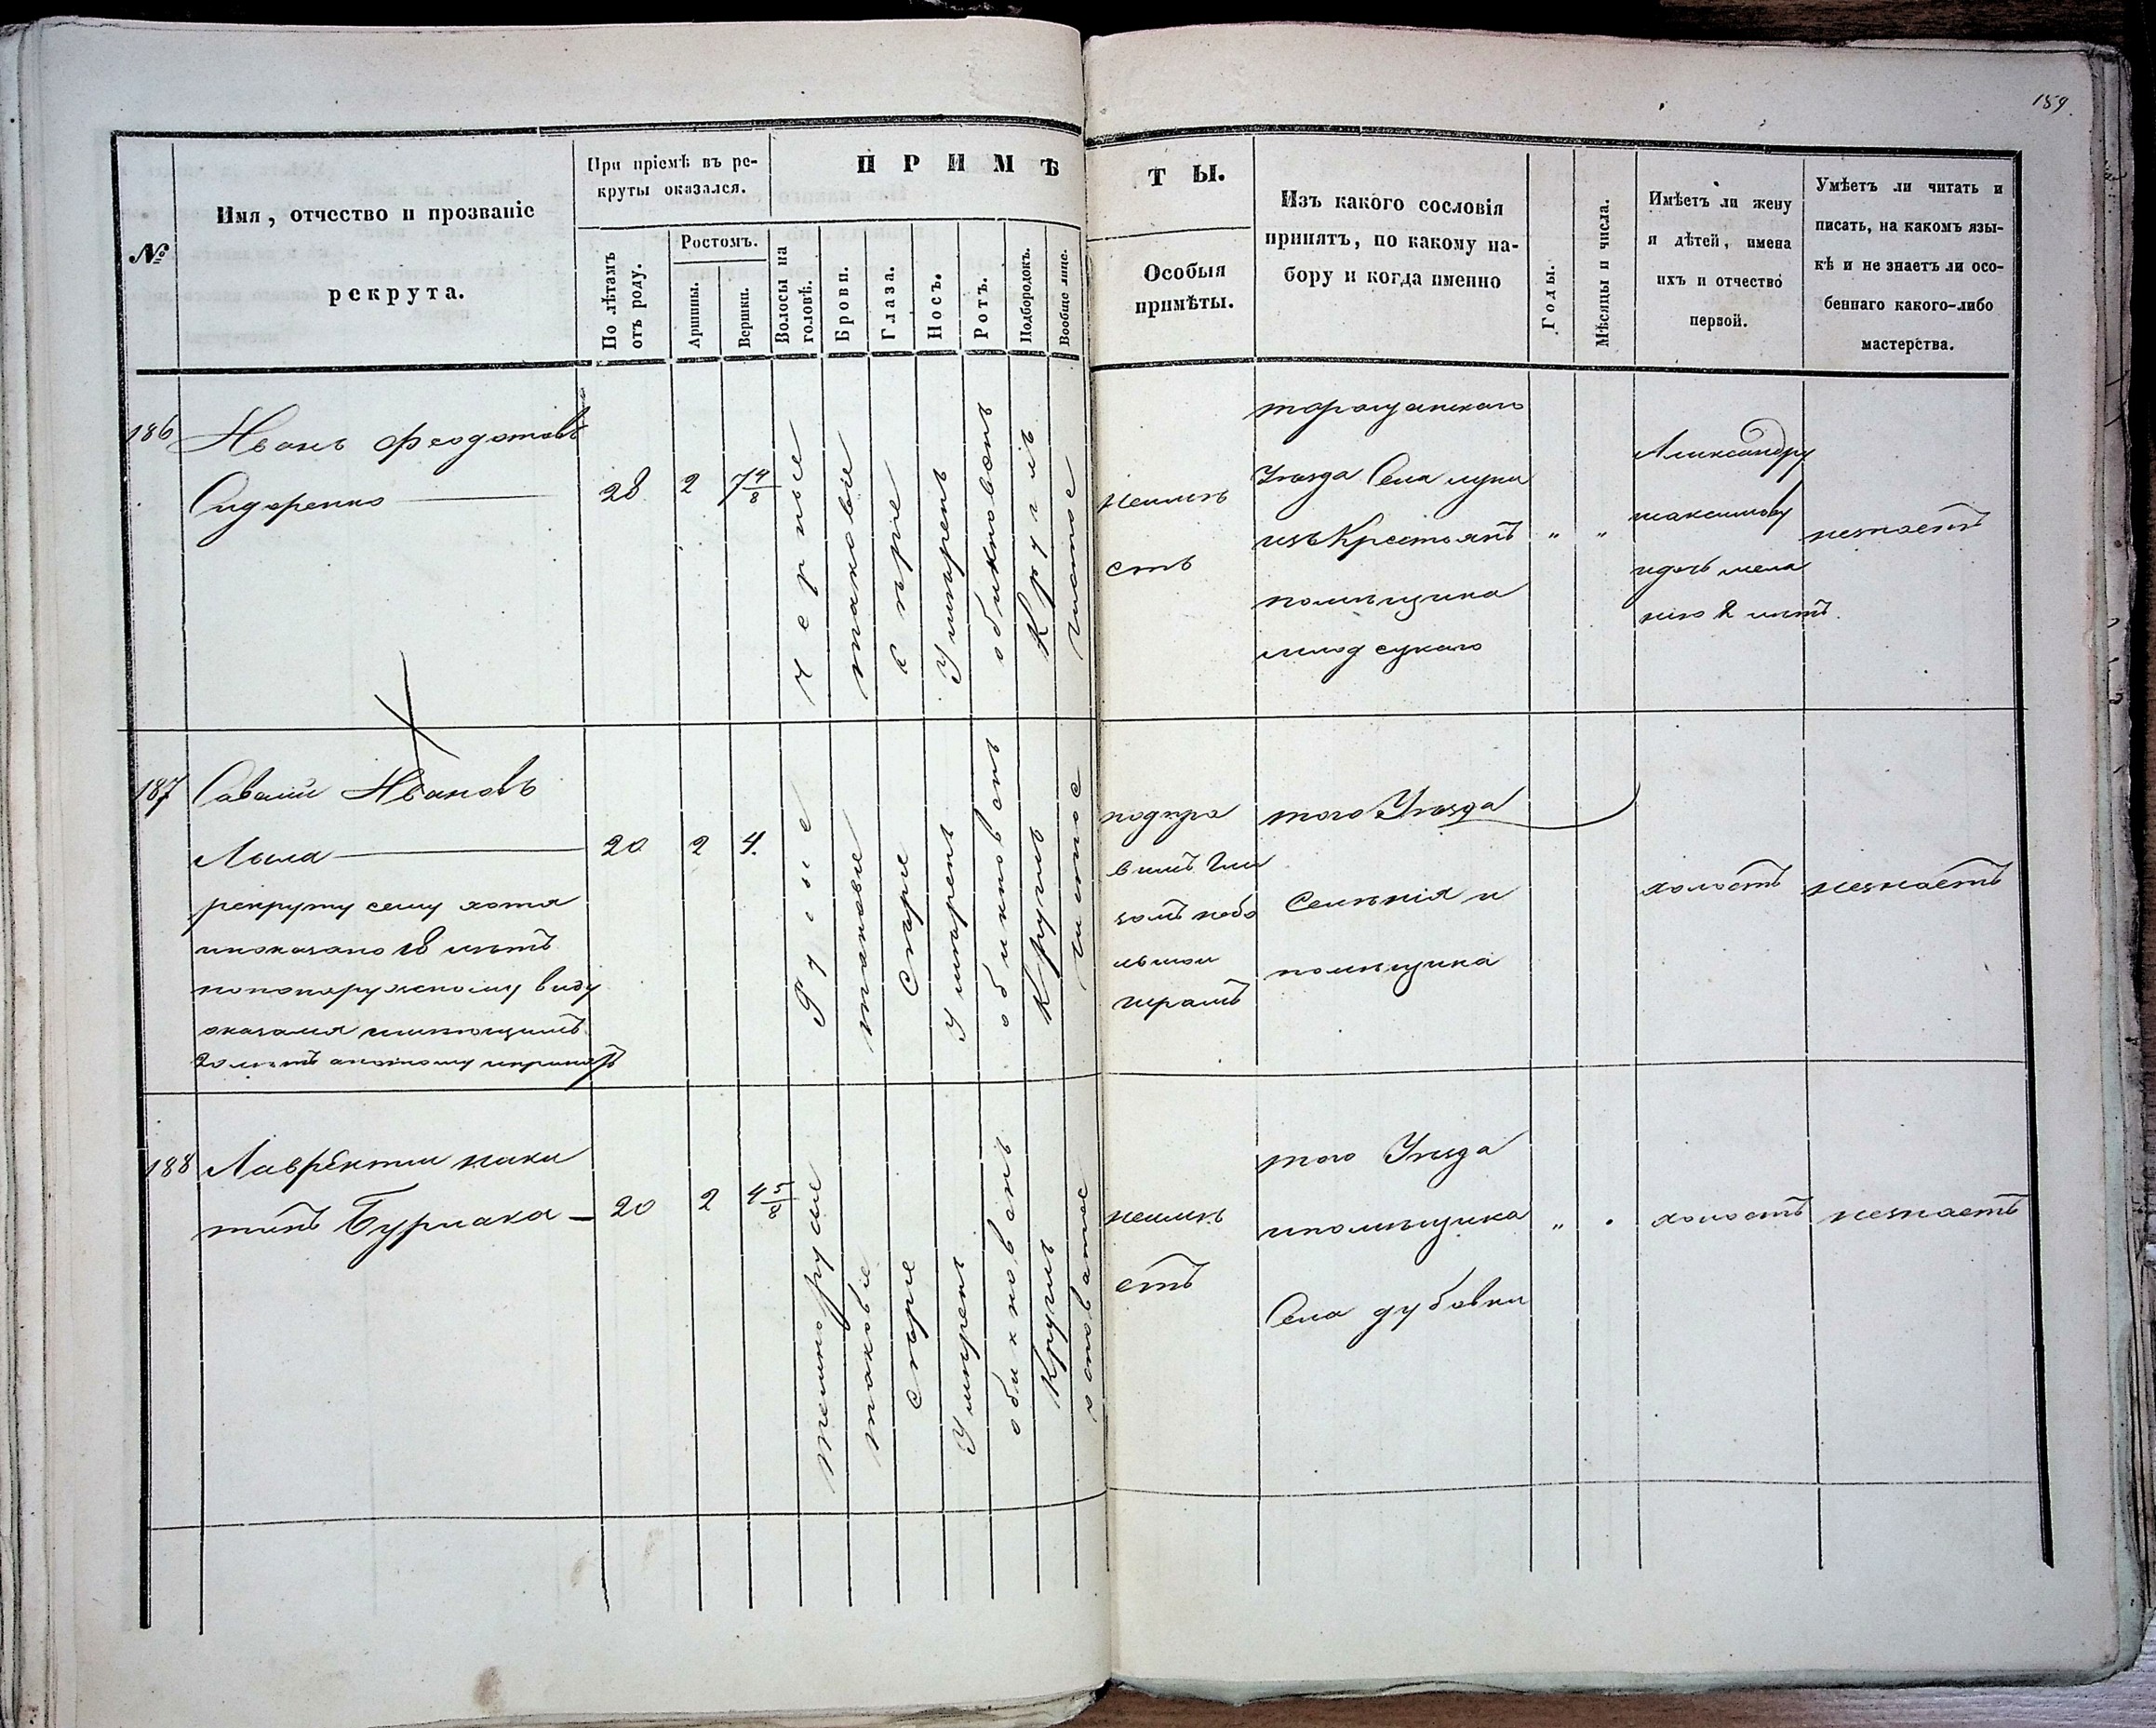 189
№
Имя, отчество и прозваніе
рекрута.
При пріемѣ въ ре-
круты оказался.
По лѣтамъ
отъ роду.
Ростомъ.
Аршины.
Вершки.
П Р И М Ѣ Т Ы.
Волосы на
головѣ.
Брови.
Глаза.
Носъ.
Ротъ.
Подбородокъ.
Вообще лице.
Особыя
примѣты.
Изъ какого сословія
принятъ, по какому на-
бору и когда именно
Годы.
Мѣсяцы и числа.
Имѣетъ ли жену
и дѣтей, имена
ихъ и отчество
первой.
Умѣетъ ли читать и
писать, на какомъ язы-
кѣ и не знаетъ ли осо-
беннаго какого-либо
мастерства.
186
Иванъ Феодотовъ
Сидоренко
28
2
7 4/8
черные
таковые
сѣрые
Умѣренъ
обикновенъ
Круглъ
чистое
неимѣ
етъ
таращанскаго
Уѣзда Села луки
изъ Крестьянъ
помѣщика
"
"
Александру
максимову
незнаетъ
187
Савелій Ивановъ
Лыла
рекруту сему хотя
ипоказано 18 лѣтъ
оказался имѣющимъ
20
2
4.
Русые
таковые
Сѣрые
Умѣренъ
обикновенъ
Круглъ
чистое
подпра
вимъ гла
зомъ небо
льшой
шрамъ
того Уѣзда
Селенія и
помѣщика
холостъ
незнаетъ
188
Лаврентий ники
тинъ Бурлака
20
2
4 5/8
темнорусые
таковые
Сѣрые
Умѣренъ
обикновенъ
Круглъ
неимѣ
етъ
того Уѣзда
ипомѣщика
Села дубовки
"
холостъ
незнаетъ